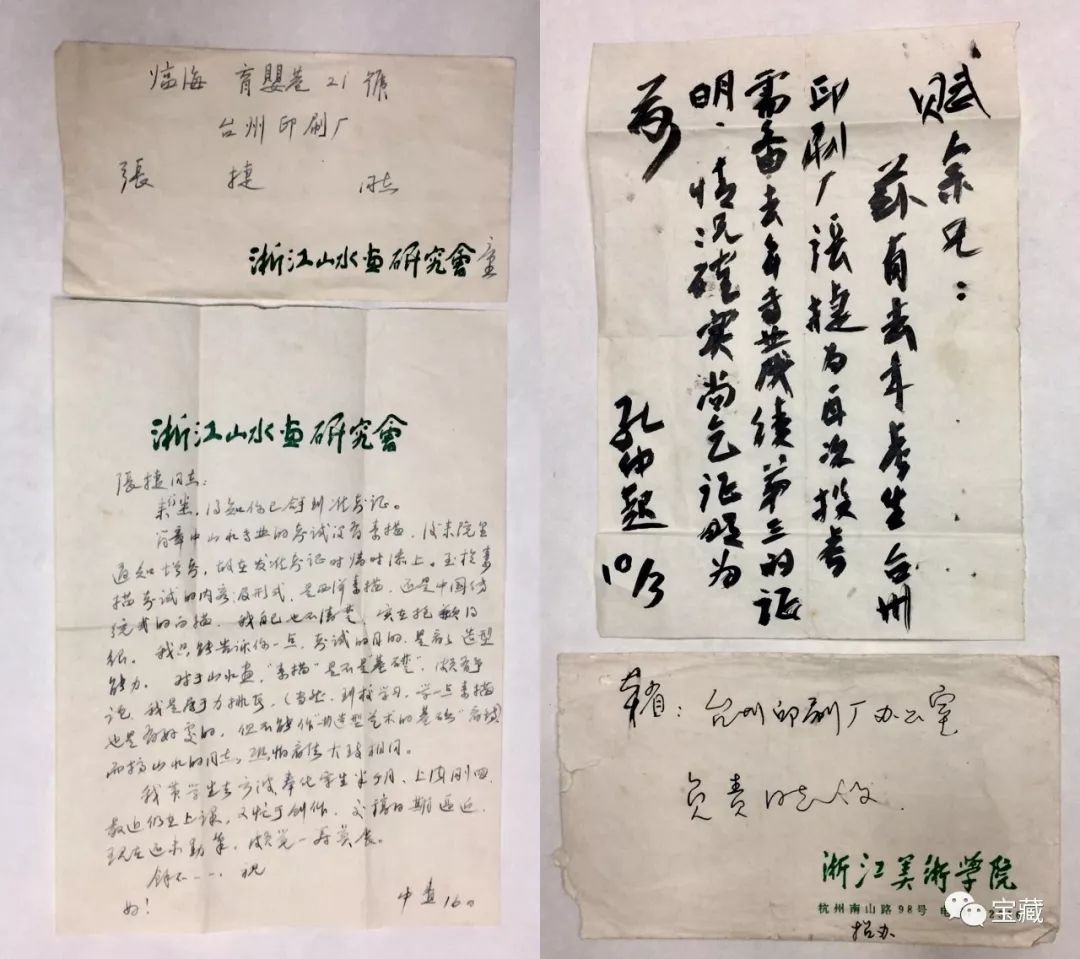 临海 育嬰巷 21 號
台州印刷厂
張 捷 同志
浙江山水畫研究會 童
浙江山水畫研究會
張捷同志：
来信悉，得知你已拿到准考证。
中山水专业的考试没有素描，没来院里
通知增考，故在发准考证时临时添上。至于素
描考试的内容及形式，是西洋素描，还是中国传
统式的白描，我自己也不清楚，实在抱歉得
很。我只能告诉你一点，考试的目的，是考造型
能力。对于山水画，"素描"是不是"基礎"，颇有争
论，我是属于力排者，（当然，到校学习，学一点素描
也是有好处的，但不能作"造型艺术的基础"
而搞山水的同志，恐怕看法大致相同。
我带学生去宁波奉化写生半个月，上海刚回，
最近仍在上课，又忙于创作，交稿日期逼近，
现在还未动笔，颇觉一筹莫展。
余不一一，祝
好！
仲 16日
赋余兄：
兹有去年考生台州
印刷厂张捷为再次投考
需要去年专业成绩第三的证
明，情况确实尚乞证明为
荷
孔仲起 10/3
台州印刷厂办公室
负责同志收
浙江美術学院
杭州南山路98号
招办
宝藏